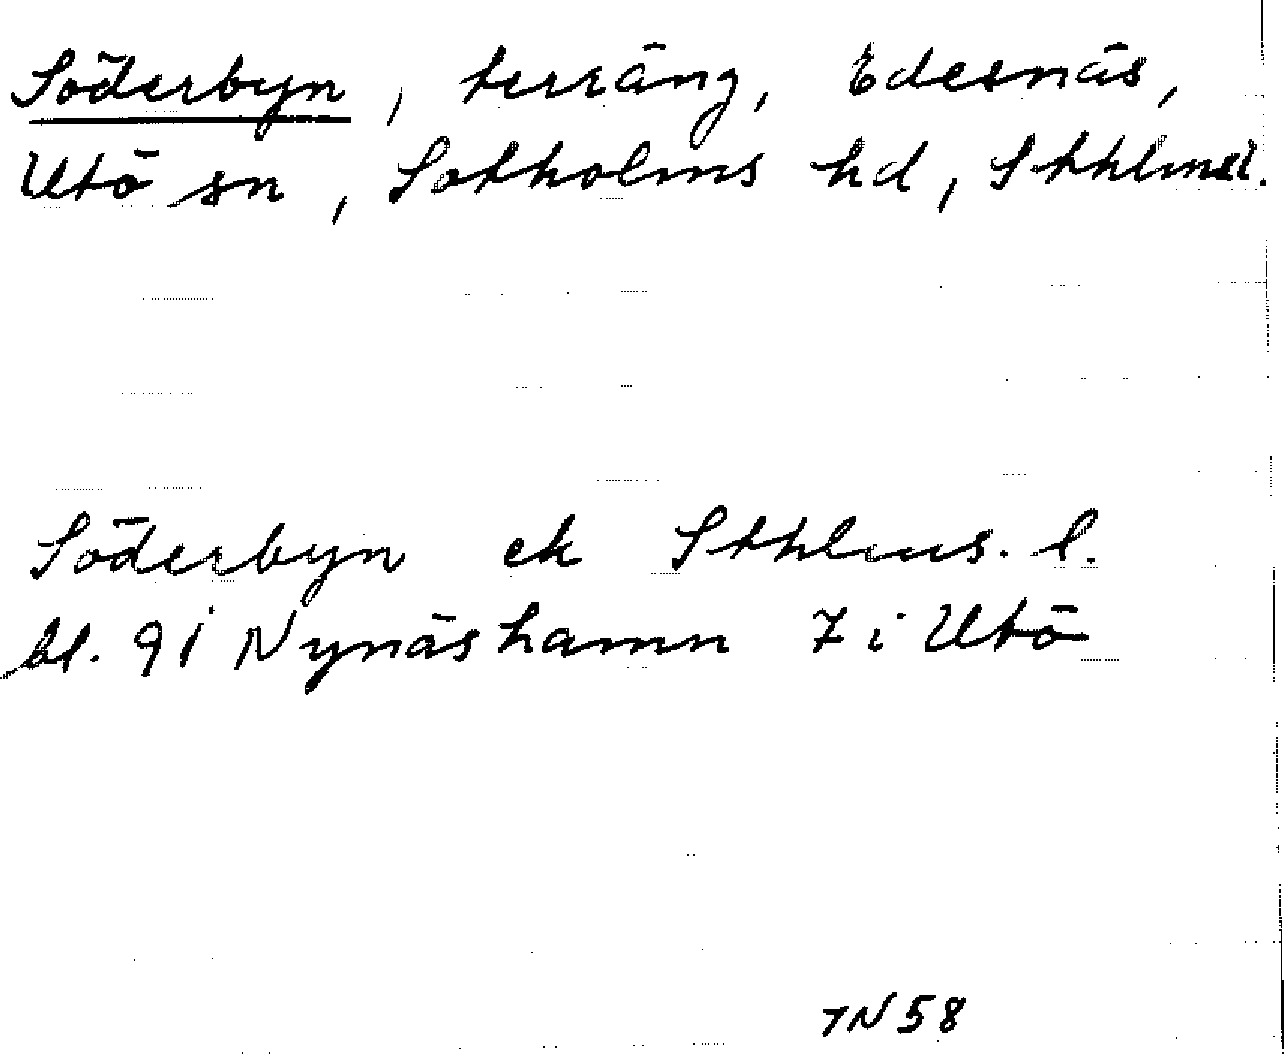 Söderbyn, terräng, Edesnäs,
Utö sn, Sotholms hd, Sthlms l.
Söderbyn ek Sthlms. l.
bl. 91 Nynäshamn 7 i Utö
TN 58